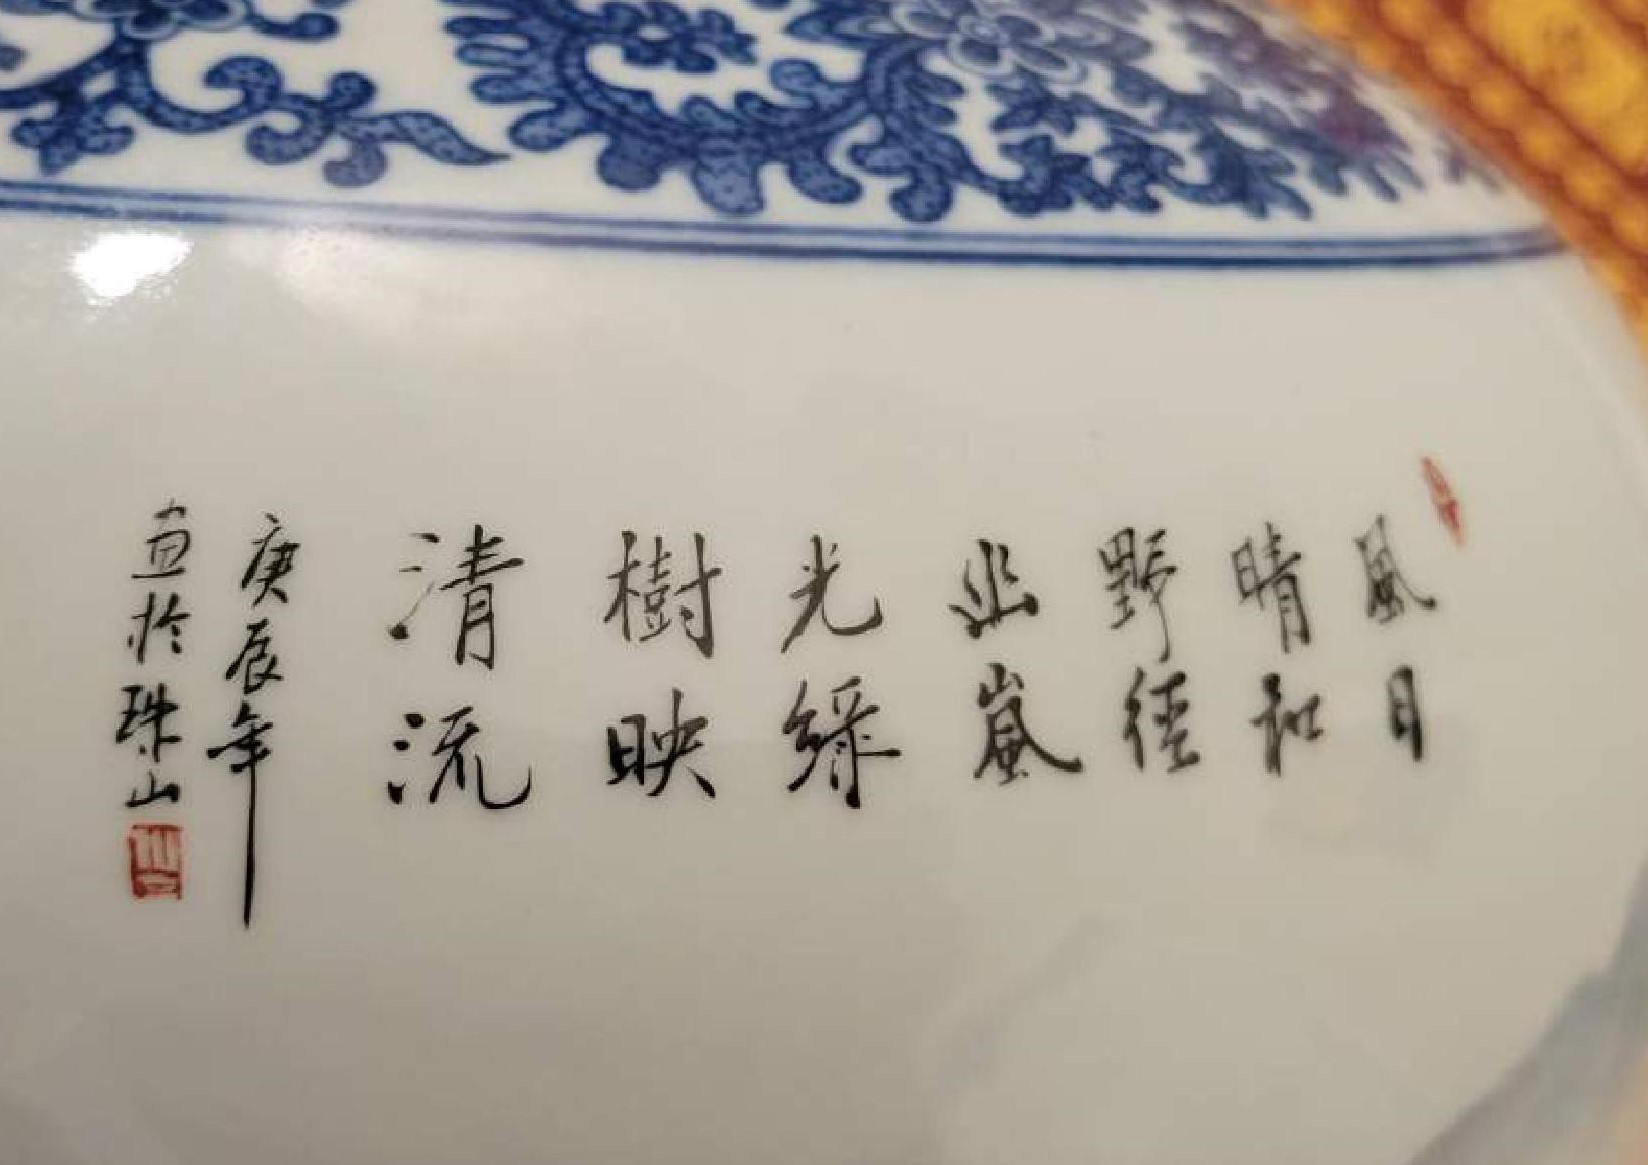 風日
晴和
野徑
幽嵐
光綠
樹映
清流
庚辰年
畫於珠山